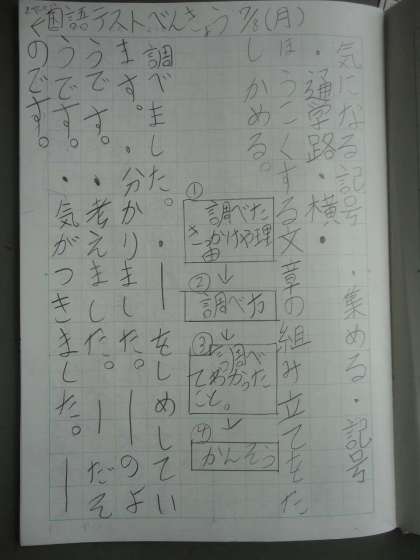 国語テストべんきょう 7/8(月)
気になる記号 ・集める・記号
・通学路・横・
ほうこくする文章の組み立てをた
しかめる。
①
調べた
きっかけや理
由
↓
②
調べ方
↓
③
調べ
てわかった
こと。
↓
④
かんそう
調べました。・―をしめしてい
ます。・分かりました。―のよ
うです。・考えました。―だそ
うです。・気がつきました。―
のです。